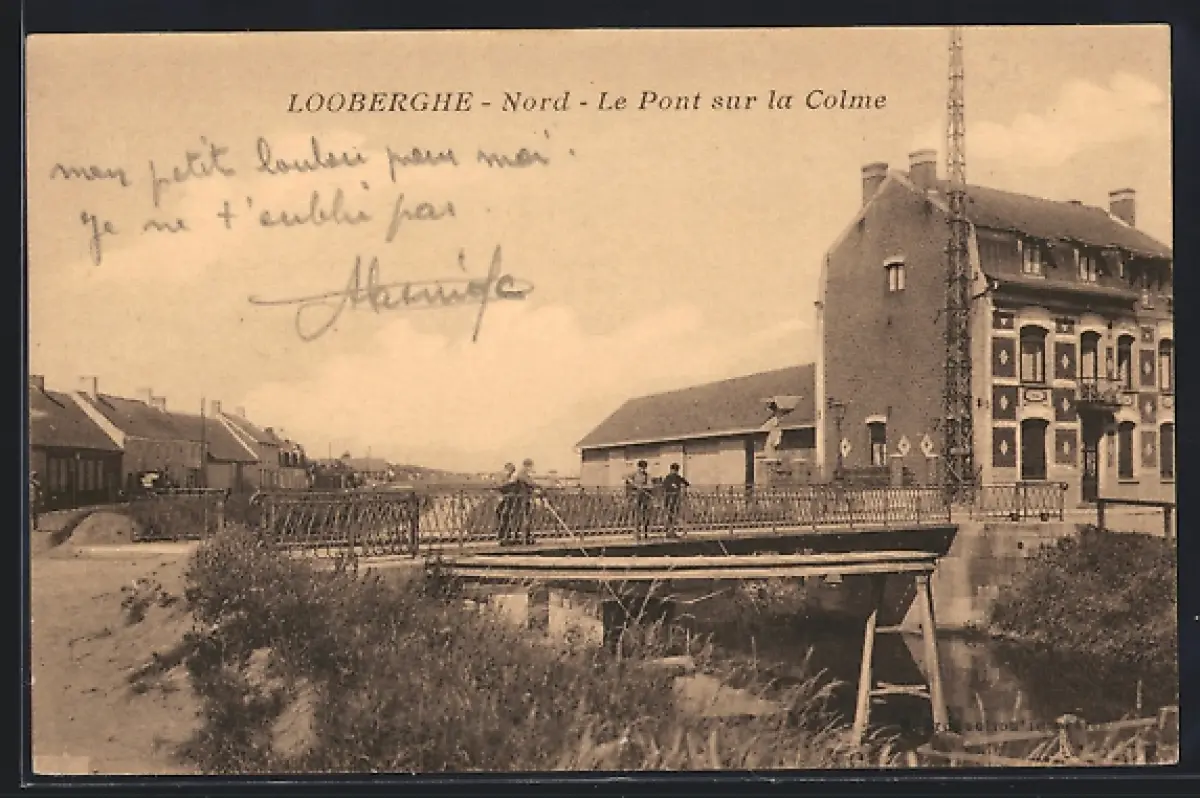 LOOBERGHE - Nord - Le Pont sur la Colme
mon petit loulou pour moi.
je ne t'oublie pas